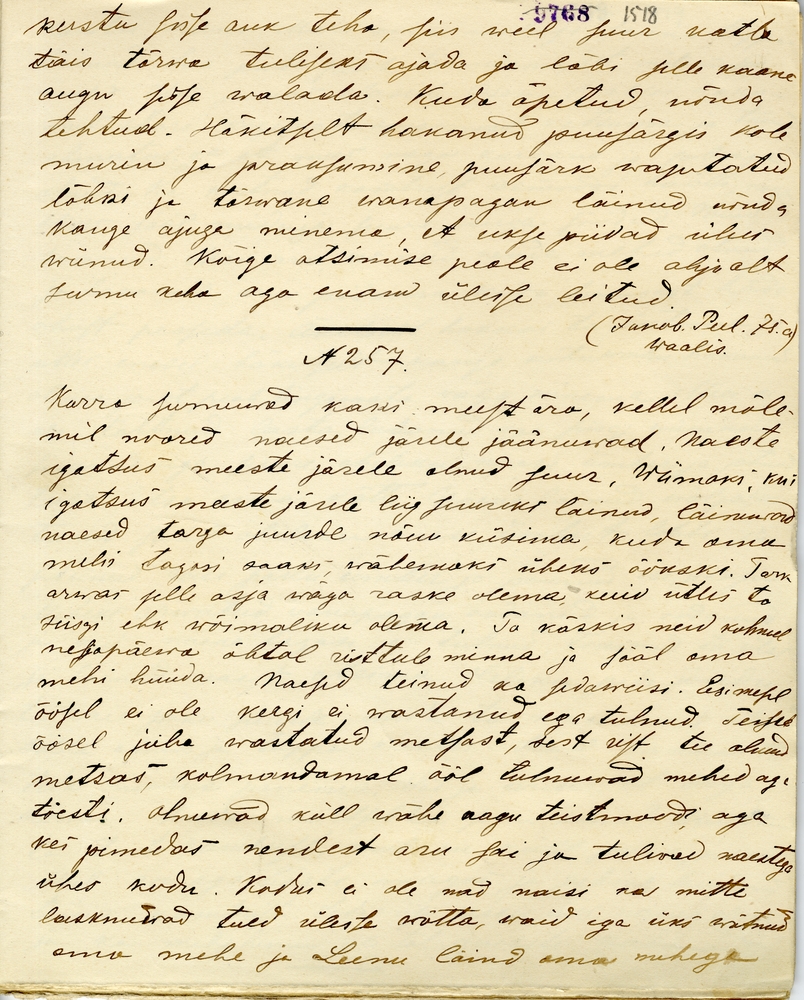 9768 1518
kerstu sisse auk teha, siis weel suur katla
täis tõrwa tuliseks ajada ja läbi selle kaane
augu sisse walada. Kuda õpetud, nõnda
tehtud. Häkitselt hakanud puusärgis kole
murin ja praksumine, puusärk waputatud
lõhki ja tõrwane wanapagan läinud nõnda
kange ajuga minema, et ukse piidad ühes
wiinud. Kõige otsimise peale ei ole ahjualt
surnu keha aga enam ülesse leitud
(Jakob. Peel. 75. a)
Waalis.
N 257.
Korra surnuwad kaks meest ära, kellel mõle-
mil noored naesed järele jäänuwad. Naeste
igatsus meeste järele olnud suur. Wiimaks, kui
igatsus meeste järele liig suureks läinud, läinuwad
naesed targa juurde nõuu küsima, kuda oma
mehi tagasi saaks, wähemaks üheks öökski. Tark
arwas selle asja wäga raske olema, kuid ütles ta
siisgi ehk wõimaliku olema. Ta käskis neid kolmel
neljapäewa õhtal risttule minna ja sääl oma
mehi hüüda. Naesed teinud ka sedawiisi. Esimesel
öösel ei ole kergi ei wastanud ega tulnud. Teisel
öösel juba wastatud metsast, sest rist tee olnud
metsas, kolmandamal ööl tulnuwad mehed aga
tõesti. Olnuwad küll wähe nagu teistmoodi, aga
kes pimedas nendest aru sai ja tuliwad naestega
ühes kodu. Kodus ei ole nad naisi ka mitte
lasknuwad tuld ülesse wõtta, waid iga üks wõtnud
oma mehe ja Leenu läind oma mehega